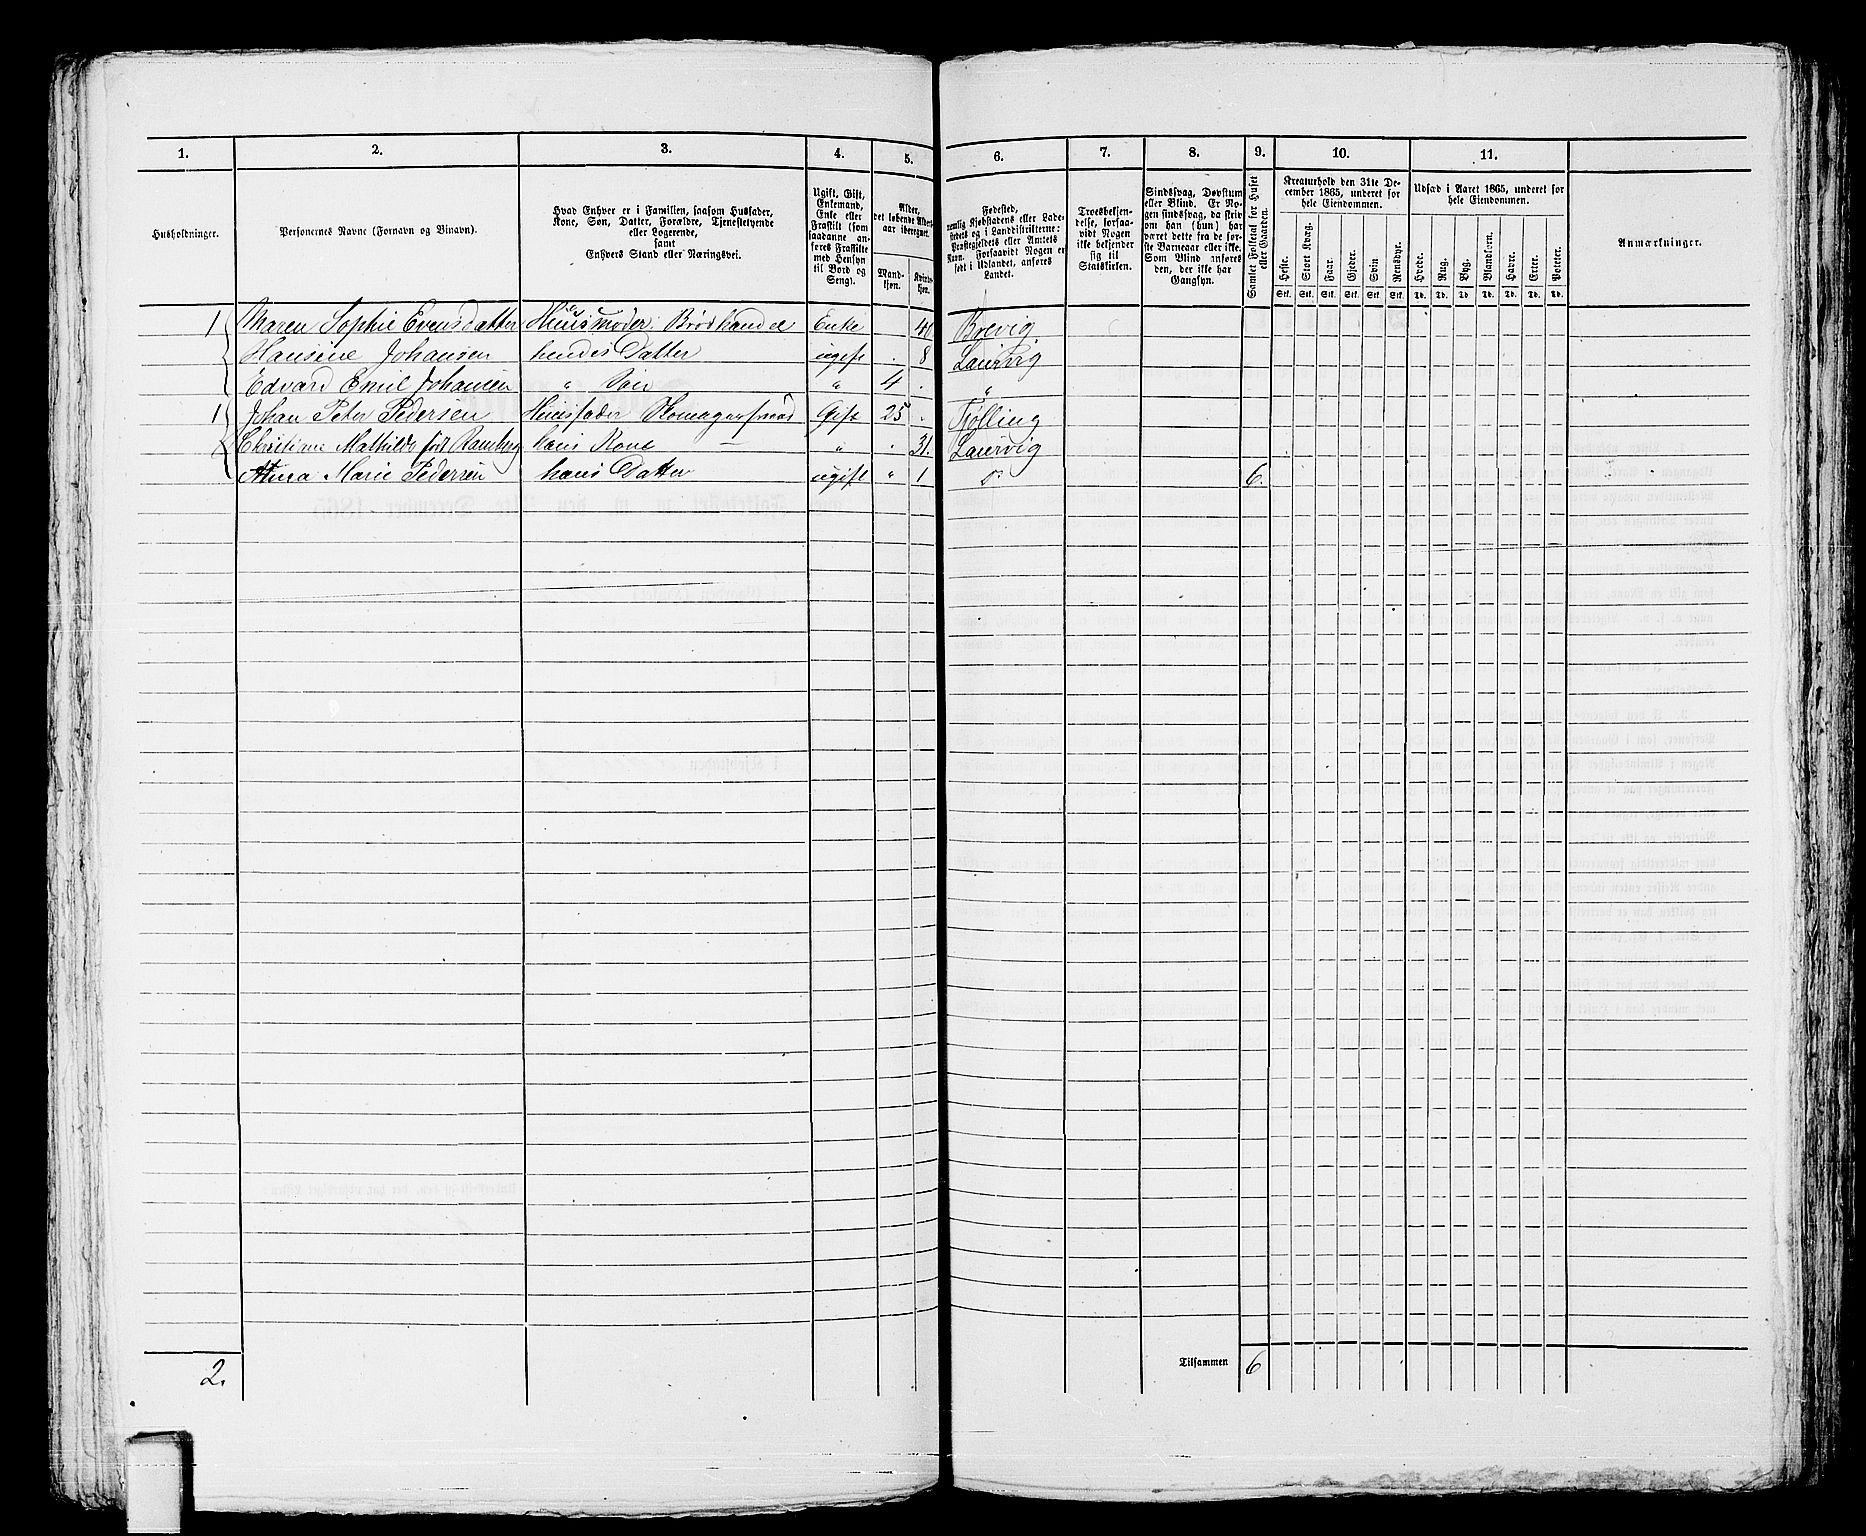 1. 2. 3. 4. 5. 6. 7. 8. 9. 10. 11.
Husholdninger.
Personernes Navne (Fornavn og Binavn).
Hvad Enhver er i Familien, saasom Husfader,
Kone, Søn, Datter, Forældre, Tjenestetyende
eller Logerende,
samt
Enhvers Stand eller Næringsvei.
Ugift, Gift,
Enkemand,
Enke eller
Fraskilt (som
saadanne an-
føres Fraskilte
med Hensyn
til Bord og
Seng).
Alder,
det løbende Alders-
aar iberegnet.
Mand-
kjøn.
Kvinde-
kjøn.
Fødested,
nemlig Kjøbstadens eller Lade-
stedets og i Landdistrikterne:
Præstegjeldets eller Amtets
Navn. Forsaavidt Nogen er
født i Udlandet, anføres
Landet.
Troesbekjen-
delse, forsaa-
vidt Nogen
ikke bekjender
sig til
Statskirken.
Sindssvag, Døvstum
eller Blind. Er No-
gen sindssvag, da skriv
om han (hun) har
været dette fra de før-
ste Barneaar eller ikke.
Som Blind anføres
den, der ikke har
Gangsyn.
Samlet Folketal for Huset
eller Gaarden.
Kreaturhold den 31te De-
cember 1865, underet for
hele Eiendommen.
Heste. Stort Kvæg. Faar. Gjeder. Svin Rensdyr.
Stk. Stk. Stk. Stk. Stk. Stk.
Udsæd i Aaret 1865, underet for
hele Eiendommen.
Hvede. Rug. Byg. Blandkorn. Havre. Erter. Poteter.
Td. Td. Td. Td. Td. Td. Td.
Anmærkninger.
1 Maren Sophie Evensdatter Huusmoder. Brødhandel Enke 40 Brevig.
Hansine Johansen hendes Datter ugift . 8 Laurvig
Edvard Emil Johansen " Søn " 4 . "
1 Johan Peter Pedersen Huusfader Skomagersvend Gift 25 . Tjølling
Christine Mathilde født Ramberg hans Kone — " . 31. Laurvig
Anna Marie Pedersen hans Datter ugift " 1 do 6.
2. Tilsammen 6